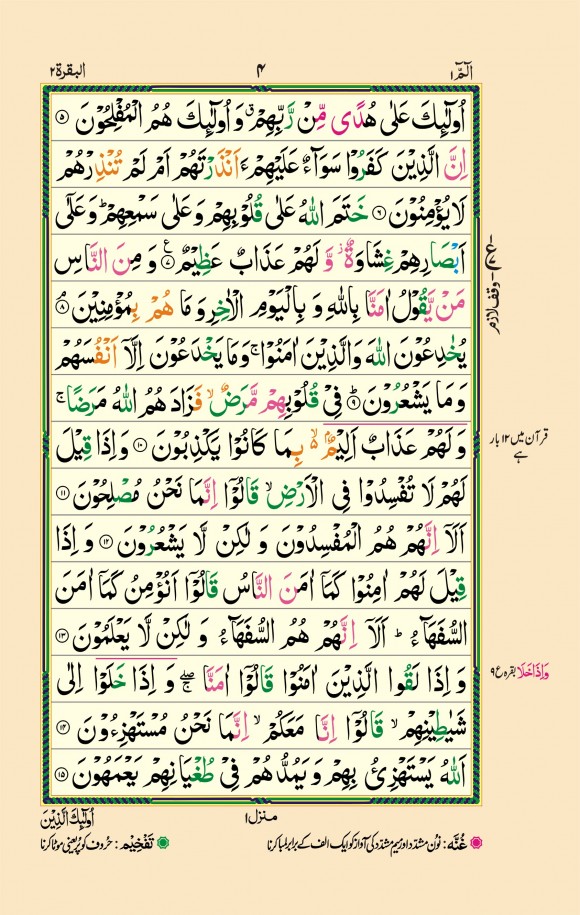 الٓمّٓ ۱ ۴ البقرة ۲
اُولٰٓئِكَ عَلٰى هُدًى مِّنْ رَّبِّهِمْ ۙ وَ اُولٰٓئِكَ هُمُ الْمُفْلِحُوْنَ ۵
اِنَّ الَّذِيْنَ كَفَرُوْا سَوَآءٌ عَلَيْهِمْ ءَاَنْذَرْتَهُمْ اَمْ لَمْ تُنْذِرْهُمْ
لَا يُؤْمِنُوْنَ ۶ خَتَمَ اللّٰهُ عَلٰى قُلُوْبِهِمْ وَعَلٰى سَمْعِهِمْ ؕ وَعَلٰٓى
اَبْصَارِهِمْ غِشَاوَةٌ ۫ وَّ لَهُمْ عَذَابٌ عَظِيْمٌ ۷ ع وَ مِنَ النَّاسِ
مَنْ يَّقُوْلُ اٰمَنَّا بِاللّٰهِ وَ بِالْيَوْمِ الْاٰخِرِ وَ مَا هُمْ بِمُؤْمِنِيْنَ ۘ ۸
يُخٰدِعُوْنَ اللّٰهَ وَالَّذِيْنَ اٰمَنُوْا ۚ وَمَا يَخْدَعُوْنَ اِلَّاۤ اَنْفُسَهُمْ
وَ مَا يَشْعُرُوْنَ ؕ ۹ فِيْ قُلُوْبِهِمْ مَّرَضٌ ۙ فَزَادَهُمُ اللّٰهُ مَرَضًا ۚ
وَ لَهُمْ عَذَابٌ اَلِيْمٌ ۙ۬ بِمَا كَانُوْا يَكْذِبُوْنَ ۱۰ وَ اِذَا قِيْلَ
لَهُمْ لَا تُفْسِدُوْا فِى الْاَرْضِ ۙ قَالُوْۤا اِنَّمَا نَحْنُ مُصْلِحُوْنَ ۱۱
اَلَاۤ اِنَّهُمْ هُمُ الْمُفْسِدُوْنَ وَ لٰكِنْ لَّا يَشْعُرُوْنَ ۱۲ وَ اِذَا
قِيْلَ لَهُمْ اٰمِنُوْا كَمَاۤ اٰمَنَ النَّاسُ قَالُوْۤا اَنُؤْمِنُ كَمَاۤ اٰمَنَ
السُّفَهَآءُ ؕ اَلَاۤ اِنَّهُمْ هُمُ السُّفَهَآءُ وَ لٰكِنْ لَّا يَعْلَمُوْنَ ۱۳
وَ اِذَا لَقُوا الَّذِيْنَ اٰمَنُوْا قَالُوْۤا اٰمَنَّا ۖۚ وَ اِذَا خَلَوْا اِلٰى
شَيٰطِيْنِهِمْ ۙ قَالُوْۤا اِنَّا مَعَكُمْ ۙ اِنَّمَا نَحْنُ مُسْتَهْزِءُوْنَ ۱۴
اَللّٰهُ يَسْتَهْزِئُ بِهِمْ وَ يَمُدُّهُمْ فِيْ طُغْيَانِهِمْ يَعْمَهُوْنَ ۱۵
وقف لازم
قرآن میں ۱۲ بار
ہے
وَاِذَا خَلَا بقرہ ع ۹
منزل ۱ اُولٰٓئِكَ الَّذِيْنَ
غُنَّه: نون مشدّد اور میم مشدّد کی آواز کو ایک الف کے برابر لمبا کرنا تَفْخِيْم: حروف کو پُر یعنی موٹا کرنا